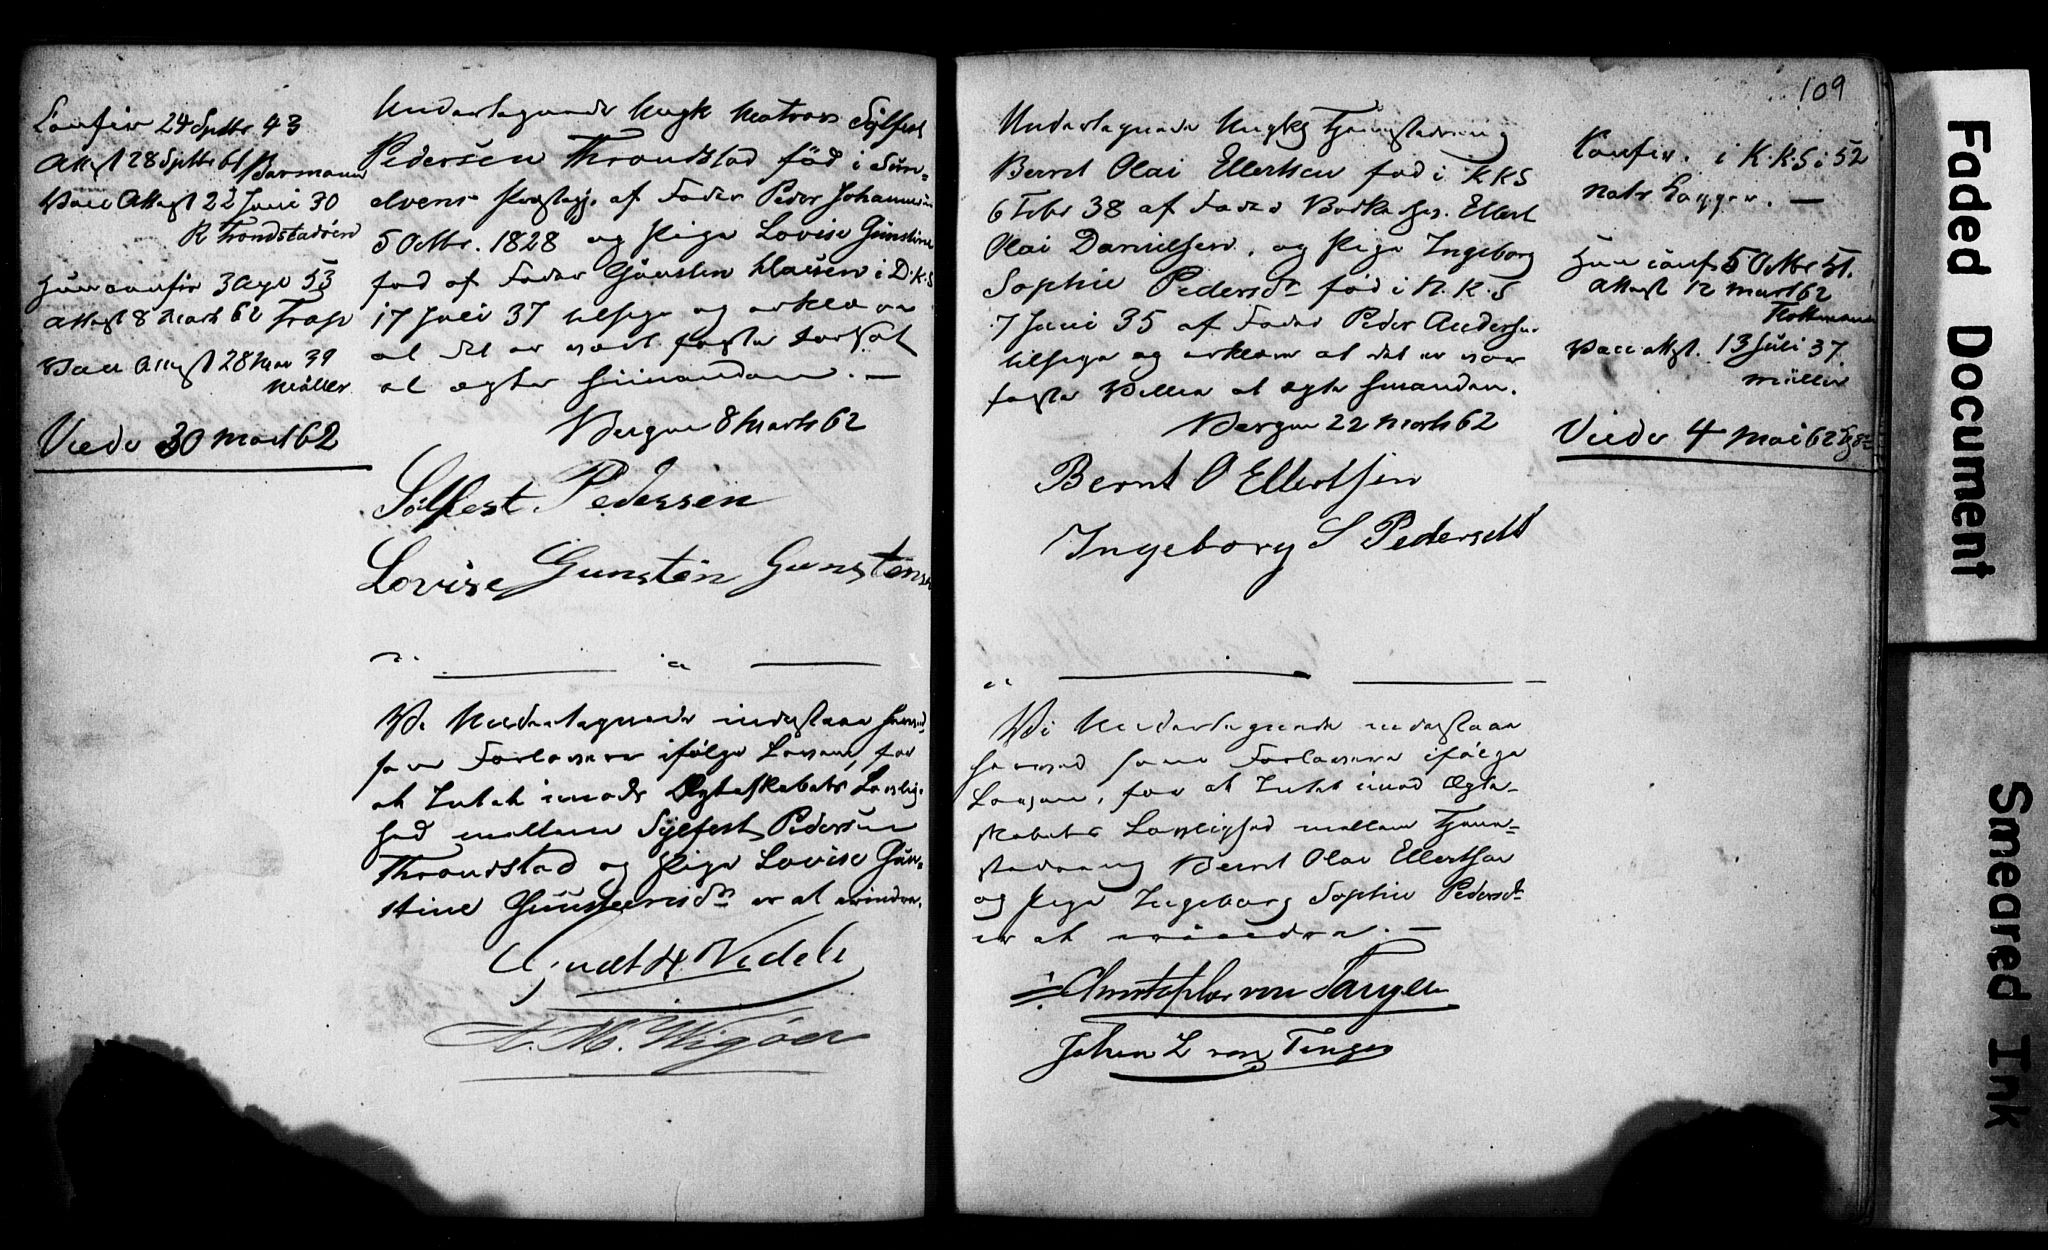 Confir 24 Sptbr 43
Attest 28 Sptbr 61 Barmann
Vacc Attest 22 Juni 30
R Trondstadvien
Hun confir 3 Apr 53
Attest 8 Marts 62 Trap
Vacc Attest 28 Mai 39
Møller
Viede 30 Mart 62
Undertegnede Ungk Matros Sylfest
Pedersen Throndstad fød i Sun-
elvens Præstegj. af Fader Peder Johannesen
5 Octbr. 1828 og Pige Lovise Günstine
fød af Fader Günsten Clausen i D.K.S
17 Juli 37 tilstaa og erklære
at det er vort faste Forsæt
at ægte hinanden. —
Bergen 8 Marts 62
Sölfest Pedersen
Lovise Gunsten Gunstens
Vi Undertegnede indestaae herved
som Forlovere ifølge Loven, for
at Intet imod Ægteskabets Lovlig-
hed mellem Sylfest Pedersen
Throndstad og Pige Lovise Gün-
stine Günstensdr er at erindre.
Knudt H Nedeli
A. M. Wigöer
109
Undertegnede Ungk
Bernt Olai Ellertsen fød i K K S
6 Febr 38 af Fader Ellert
Olai Danielsen, og Pige Ingeborg
Sophie Pedersdr fød i N.K.S
7 Juni 35 af Fader Peder Andersen
og erklære at det er vor
faste Villie at ægte hinanden.
Bergen 22 Marts 62
Bernt O Ellertsen
Ingeborg S Pedersdt
Vi Undertegnede indestaae
herved som Forlovere ifølge
Loven, for at Intet imod Ægte-
skabets Lovlighed mellem
Bernt Olai Ellertsen
og Pige Ingeborg Sophie Pedersdt
er at erindre. —
Christopher von Tangen
Johan L von Tangen
Confir. i K.K.S i 52
Hun conf 5 Octbr 51.
Attest 12 Mart 62
Vacc attst. 13 Juli 37
Müller
Viede 4 Mai 62
Faded Document
Smeared Ink